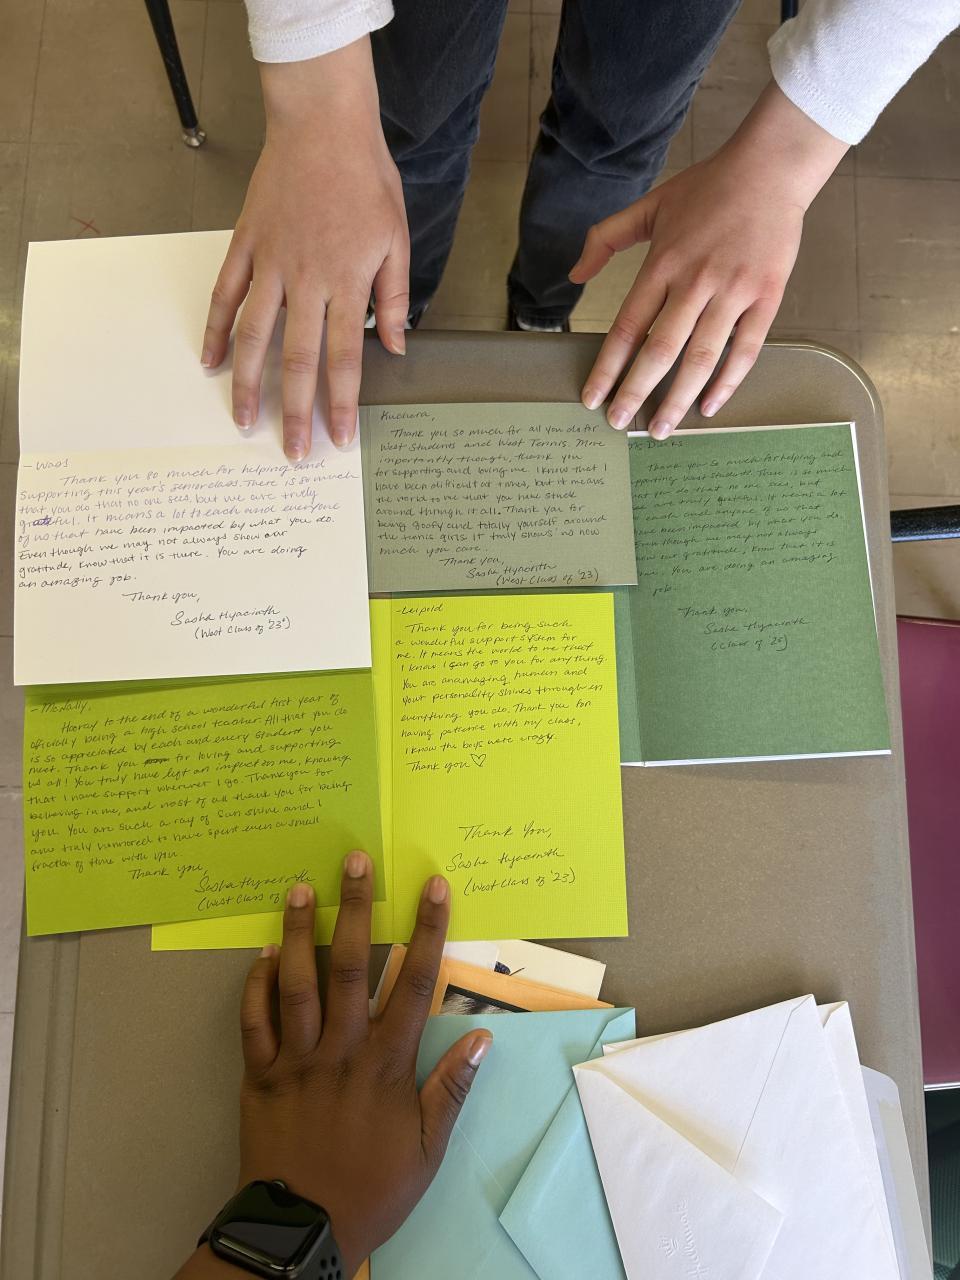 - Waas
Thank you so much for helping and
supporting this year's senior class. There is so much
that you do that no one sees, but we are truly
grateful. It means a lot to each and everyone
of us that have been impacted by what you do.
Even though we may not always show our
gratitude, know that it is there. You are doing
an amazing job.
Thank you,
Sasha Hyacinth
(West Class of '23)
Kuchara,
Thank you so much for all you do for
West Students and West Tennis. More
importantly though, thank you
for supporting and loving me. I know that I
have been difficult at times, but it means
the world to me that you have stuck
around through it all. Thank you for
being goofy and totally yourself around
the tennis girls. It truly shows us how
much you care.
Thank you,
Sasha Hyacinth
(West Class of '23)
Thank you so much for helping and
supporting West students. There is so much
that you do that no one sees, but
we are truly grateful. It means a lot
each and anyone of us that
have been impacted by what you do.
Even though we may not always
show our gratitude, know that it is
. You are doing an amazing
job.
Thank you,
Sasha Hyacinth
(Class of '23)
- McNally,
Hooray to the end of a wonderful first year of
officially being a high school teacher. All that you do
is so appreciated by each and every student you
meet. Thank you for loving and supporting
us all! You truly have left an impact on me, knowing
that I have support wherever I go. Thank you for
believing in me, and most of all thank you for being
you. You are such a ray of sunshine and I
am truly honored to have spent even a small
fraction of time with you.
Thank you,
Sasha Hyacinth
(West Class of
- Leipold
Thank you for being such
a wonderful support system for
me. It means the world to me that
I know I can go to you for anything.
You are an amazing human and
your personality shines through in
everything you do. Thank you for
having patience with my class,
I know the boys were crazy.
Thank you ♡
Thank You,
Sasha Hyacinth
(West Class of '23)
Hallmark